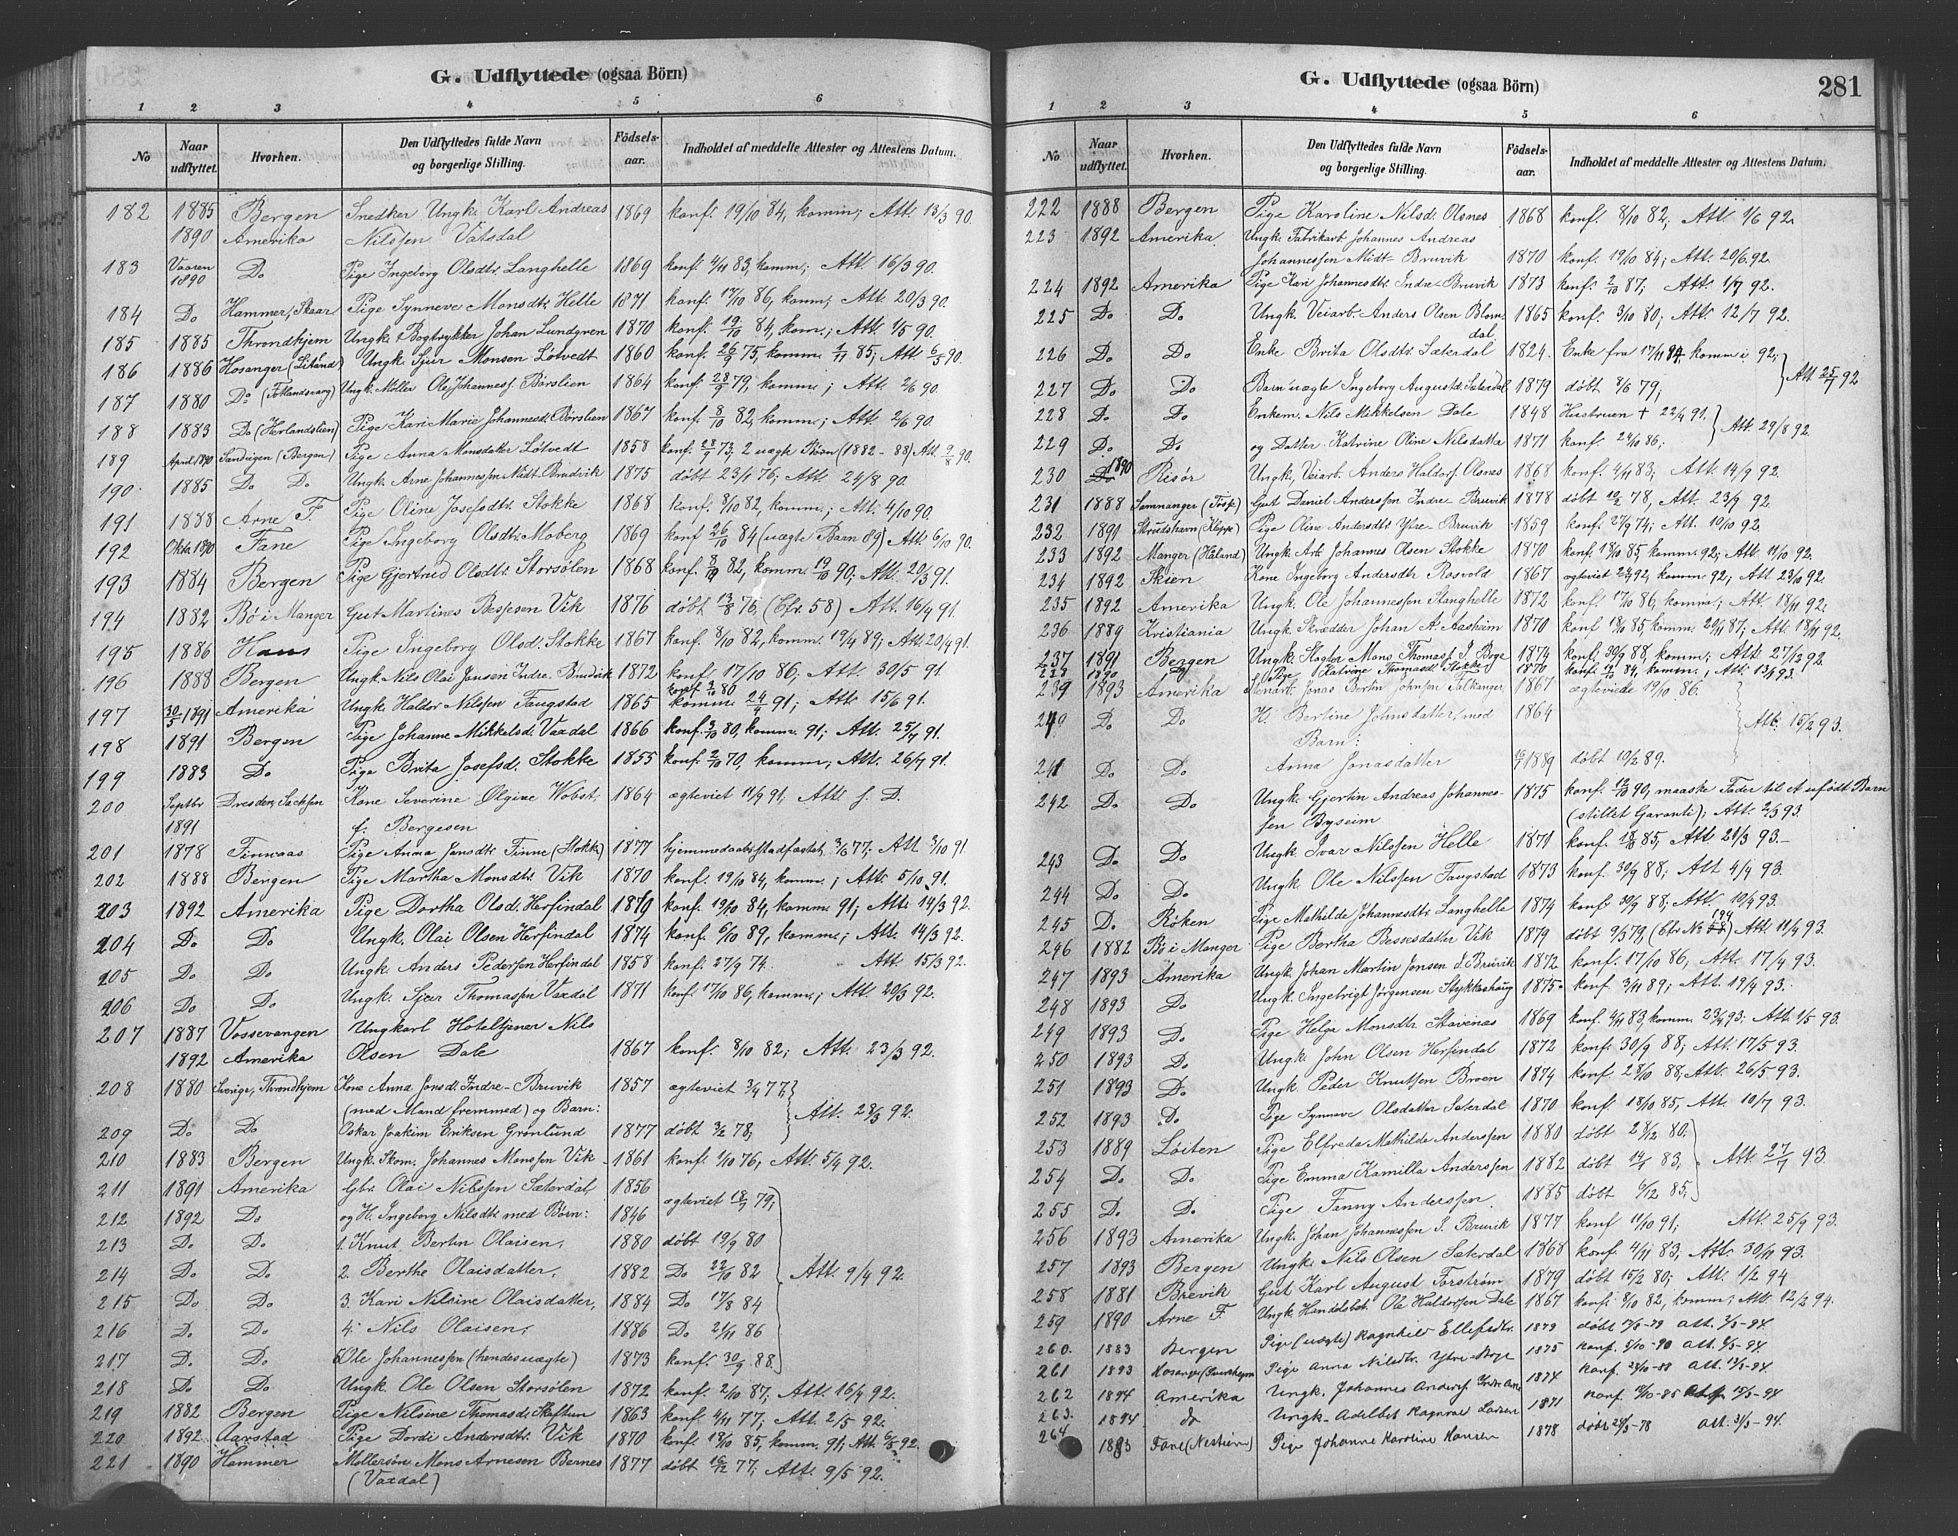 G. Udflyttede (ogsaa Börn)
1 2 3 4 5 6
No Naar udflyttet. Hvorhen. Den Udflyttedes fulde Navn og borgerlige Stilling. Födselsaar. Indholdet af meddelte Attester og Attestens Datum.
182 1885 Bergen Snedker Ungk. Karl Andreas 1869 konf. 19/10 84, komm.; Att. 13/3 90.
1890 Amerika Nilssen Vatsdal
183 Vaaren 1890 Do Pige Ingeborg Olsdtr. Langhelle 1869 konf. 4/11 83, komm.; Att. 16/3 90.
184 Do Hammer, Skaar Pige Synneve Monsdtr. Helle 1871 konf. 17/10 86, komm; Att. 20/3 90.
185 1885 Throndhjem Ungk. Bogtrykker Johan Lundgren 1870 konf. 19/10 84, kom.; Att. 1/5 90.
186 1886 Hosanger Ungk. Sjur Monsen Lotvedt 1860 konf. 26/9 75, komm. 85; Att. 6/5 90.
187 1880 Do Ungk. Møller Ole Johanness. Børslien 1864 konf. 28/9 79, komm; Att. 2/6 90.
188 1883 Do (Herlandslien) Pige Kari Marie Johannesdt. Børslien 1867 konf. 8/10 82, komm; Att. 2/6 90.
189 April 1890 Sandvigen (Bergen) Pige Anna Monsdatter Løtvedt 1858 konf. 28/9 73, 2 uægte Börn (1882-88) Att. 9/8 90.
190 1885 Do Do Ungk. Arne Johannessen Midt-Brudvik 1875 døbt 23/1 76; Att. 24/8 90.
191 1888 Arne F. Pige Oline Josefsdtr. Stokke 1868 konf. 8/10 82, komm.; Att. 4/10 90.
192 Oktr. 1890 Fane Pige Ingeborg Olsdtr. Moberg 1869 konf 26/10 84 (uægte Barn 89) Att. 6/10 90.
193 1884 Bergen Pige Gjertrud Olsdtr. Storsølen 1868 konf. 8/10 82, komm. 19/10 90; Att. 20/3 91.
194 1882 Bø i Manger Gut Martines Bessesen Vik 1876 døbt 13/8 76, (Cfr. 58) Att. 16/4 91.
195 1886 Haus Pige Ingeborg Olsd. Stokke 1867 konf. 8/10 82, komm. 19/4 89; Att. 20/4 91.
196 1888 Bergen Ungk. Nils Olai Jensen Indre Brudvik 1872 konf. 17/10 86, Att. 30/5 91.
197 30/5 1891 Amerika Ungk. Haldor Nilssen Faugstad 1865 konf. 3/10 80 komm. 24/4 91; Att. 15/6 91.
198 1891 Bergen Pige Johanne Mikkelsd. Vaxdal 1866 konf. 3/10 80, komm. 91; Att. 25/7 91.
199 1883 Do Pige Brita Josefsd. Stokke 1855 konf. 2/10 70, komm; Att. 26/7 91.
200 Septbr 1891 Dresden, Sachsen Kone Severine Olgine Wobst, 1864 ægteviet 11/9 91, Att. s. D.
f. Bergesen
201 1878 Finnaas Pige Anna Jansdtr. Finne (Stokke) 1877 hjemmedaab stadfæstet 3/6 77; Att 3/10 91
202 1888 Bergen Pige Martha Monsdtr. Vik 1870 konf. 19/10 84, komm.; Att. 5/10 91.
203 1892 Amerika Pige Dortha Olsd. Herfindal 1870 konf. 19/10 84, komm 91; Att. 14/3 92.
204 Do Do Ungk. Olai Olsen Herfindal 1874 konf. 6/10 89, komm; Att. 14/3 92.
205 Do Do Ungk. Anders Pedersen Herfindal 1858 konf. 27/9 74. Att. 15/3 92.
206 Do Do Ungk. Sjur Thomassen Vaxdal 1871 konf. 17/10 86, komm; Att. 20/3 92.
207 1887 Vossevangen Ungkarl Hoteltjener Nils
1892 Amerika Olsen Dale 1867 konf. 8/10 82; Att. 23/3 92.
208 1880 Sverige, Throndhjem Kone Anna Jonsd. Indre-Bruvik 1857 ægteviet 3/4 77;
(med Mand fremmed) og Barn: Att. 28/3 92.
209 Do Do Oskar Joakim Eriksen Grönlund 1877 døbt 3/2 78;
210 1883 Bergen Ungk. Skom. Johannes Monssen Vik 1861 konf. 1/10 76; Att. 5/4 92.
211 1891 Amerika Gbr. Olai Nilssen Sæterdal, 1856 ægteviet 18/7 79;
212 1892 Do og H. Ingeborg Nilsdtr. med Børn: 1846
213 Do Do 1. Knut Bertin Olaisen, 1880 døbt 19/9 80
214 Do Do 2. Berthe Olaisdatter, 1882 Do 22/10 82 Att. 9/4 92.
215 Do Do 3. Kari Nilsine Olaisdatter, 1884 Do 17/8 84
216 Do Do 4. Nils Olaisen, 1886 Do 21/11 86
217 D. Do Ole Johannessen (hendes uægte) 1873 konf. 30/9 88.
218 Do Do Ungk. Ole Olsen Storsølen 1872 konf. 2/10 87; Att. 16/4 92.
219 1882 Bergen Pige Nilsine Thomasd. Skaftun 1863 konf. 4/11 77; Att. 2/5 92.
220 1892 Aarstad Pige Dordi Andersdtr. Vik 1870 konf. 18/10 85, komm. 91; Att. 6/5 92.
221 1890 Hammer Møllersøn Mons Arnesen Bernes 1877 døbt 16/12 77; Att. 9/5 92.
(Vaxdal)
G. Udflyttede (ogsaa Börn) 281
1 2 3 4 5 6
No Naar udflyttet. Hvorhen. Den Udflyttedes fulde Navn og borgerlige Stilling. Födselsaar. Indholdet af meddelte Attester og Attestens Datum.
222 1888 Bergen Pige Karoline Nilsd. Olsnes 1868 konf. 8/10 82; Att. 1/6 92.
223 1892 Amerika Ungk. Fabrikarb. Johannes Andreas
Johannessen Midt-Bruvik 1870 konf. 19/10 84; Att. 20/6 92.
224 1892 Amerika Pige Kari Johannesdtr. Indre-Bruvik 1873 konf. 2/10 87; Att. 1/7 92.
225 Do Do Ungk. Veiarb. Anders Olsen Blomdal 1865 konf. 3/10 80; Att. 12/7 92.
226 Do Do Enke Brita Olsdtr. Sæterdal 1824. Enke fra 17/11 komm i 92; Att 25/7 92
227 Do Do Barn uægte Ingeborg Augustd. Sæterdal 1879 døbt 8/6 79;
228 Do Do Enkem. Nils Mikkelsen Dale 1848 Hustruen + 22/4 91. Att. 29/8 92.
229 Do Do og Datter Katrine Oline Nilsdatter 1871 konf. 24/10 86;
230 1890 Risør Ungk. Veiarb. Anders Haldors. Olsnes 1868 konf. 4/11 83; Att. 14/9 92.
231 1888 Samnanger Gut Daniel Anderssen Indre Bruvik 1878 døbt 10/2 78, Att. 23/9 92.
232 1891 Skudshavn (Kleppe) Pige Oline Andersdtr. Ytre-Bruvik 1859 konf. 27/9 74; Att. 10/10 92.
233 1892 Manger (Haland) Ungk. Arb. Johannes Olsen Stokke 1870 konf. 18/10 85, komm. 92; Att. 11/10 92.
234 1892 Skien Kone Ingeborg Andersdtr. Rosvold 1867 ægteviet 92, komm 92; Att 23/10 92.
235 1892 Amerika Ungk. Ole Johannessen Langhelle 1872 konf. 17/10 86, komm; Att. 18/11 92.
236 1889 Kristiania Ungk. Skrædder Johan A. Aasheim 1870 konf 18/10 85, komm. 20/11 87; Att. 18/11 92.
237 1891 Bergen Ungk. Slagter Mons Thomass. J. Boge 1874 konf. 30/9 88, komm; Att. 27/12 92
238 1890 Do Pige Katrine Thomasdt Stokke 1870 konf. 19/10 84, komm; Att. 13/1 93.
239 1893 Amerika Stenarb. Jonas Bertin Johnsen Falkanger 1867 ægteviede 19/10 86.
240 Do Do H. Bertine Johnsdatter, med 1864 Att. 16/2 93.
Barn:
241 Do Do Anna Jonasdatter 1889 døbt 10/2 89.
242 Do Do Ungk. Gjertin Andreas Johannes- 1875 konf. 12/10 90, maaske Fader til et ufödt Barn
sen Byseim (stillet Garanti); Att. 2/3 93.
243 Do Do Ungk. Ivar Nilssen Helle 1871 konf. 18/10 85, Att 21/3 93.
244 Do Do Ungk. Ole Nilssen Faugstad 1873 konf. 30/9 88, Att 4/4 93.
245 D. Røken Pige Mathilde Johannesdtr. Langhelle 1874 konf. 30/9 88, Att. 10/4 93.
246 1882 Bø i Manger Pige Bertha Bessesdatter Vik 1879 døbt 9/3 79, (Cfr. No 194) Att. 11/4 93.
247 1893 Amerika Ungk. Johan Martin Jensen I. Bruvik 1872 konf. 17/10 86, Att. 17/4 93.
248 1893 Do Ungk. Ingebrigt Jörgensen Stykkeshaug 1875. konf 3/11 89; Att. 19/4 93.
249 1893 Do Pige Helga Monsdtr. Stavenes 1869 konf. 4/11 83, komm. 23/4 93. Att. 1/5 93.
250 1893 Do Ungk. John Olsen Herfindal 1872 konf. 30/9 88; Att. 17/5 93.
251 1893 Do Ungk. Peder Knutsen Broen 1874 konf. 28/10 88, Att. 26/5 93.
252 1893 Do Pige Synneve Olsdatter Sæterdal 1870 konf. 18/10 85, Att. 10/7 93.
253 1889 Løiten Pige Elfreda Mathilde Anderssen 1880 døbt 28/12 80.
254 Do Do Pige Emma Kamilla Anderssen 1882 døbt 14/1 83, Att. 27/7 93
255 Do Do Pige Fanny Anderssen. 1885 døbt 6/12 85,
256 1893 Amerika Ungk. Johan Johannessen I. Bruvik 1877 konf 11/10 91; Att. 25/9 93.
257 1893 Bergen Ungk. Nils Olsen Sæterdal 1868 konf. 4/11 83, Att. 30/11 93.
258 1881 Brevik Gut Karl August Forström 1879 døbt 15/2 80; Att. 1/2 94
259 1890 Arne F. Ungk. Handelsbet. Ole Haldorsen Dale 1867 konf. 8/10 82, komm; Att. 12/2 94.
260. 1883 Bergen Pige (uægte) Ragnhild Ellefsdtr. 1879 døbt -79 att. -94
261 1893 Hosanger Pige Anna Nilsdtr. Ytre-Boge 1875 konf. 5/10 -90 att. -94
262 1894 Amerika Ungk. Johannes Anders. Indre Arne 1874 konf. -88 att. -94
263. 1894 do Ungk. Adelbet Ragnvæ Larsen 1871 konf. -85 att. -94
264 1893 Fane (Nestun) Pige Johanne Karoline Hansen 1878 döbt -78 att. 3/5 -94.